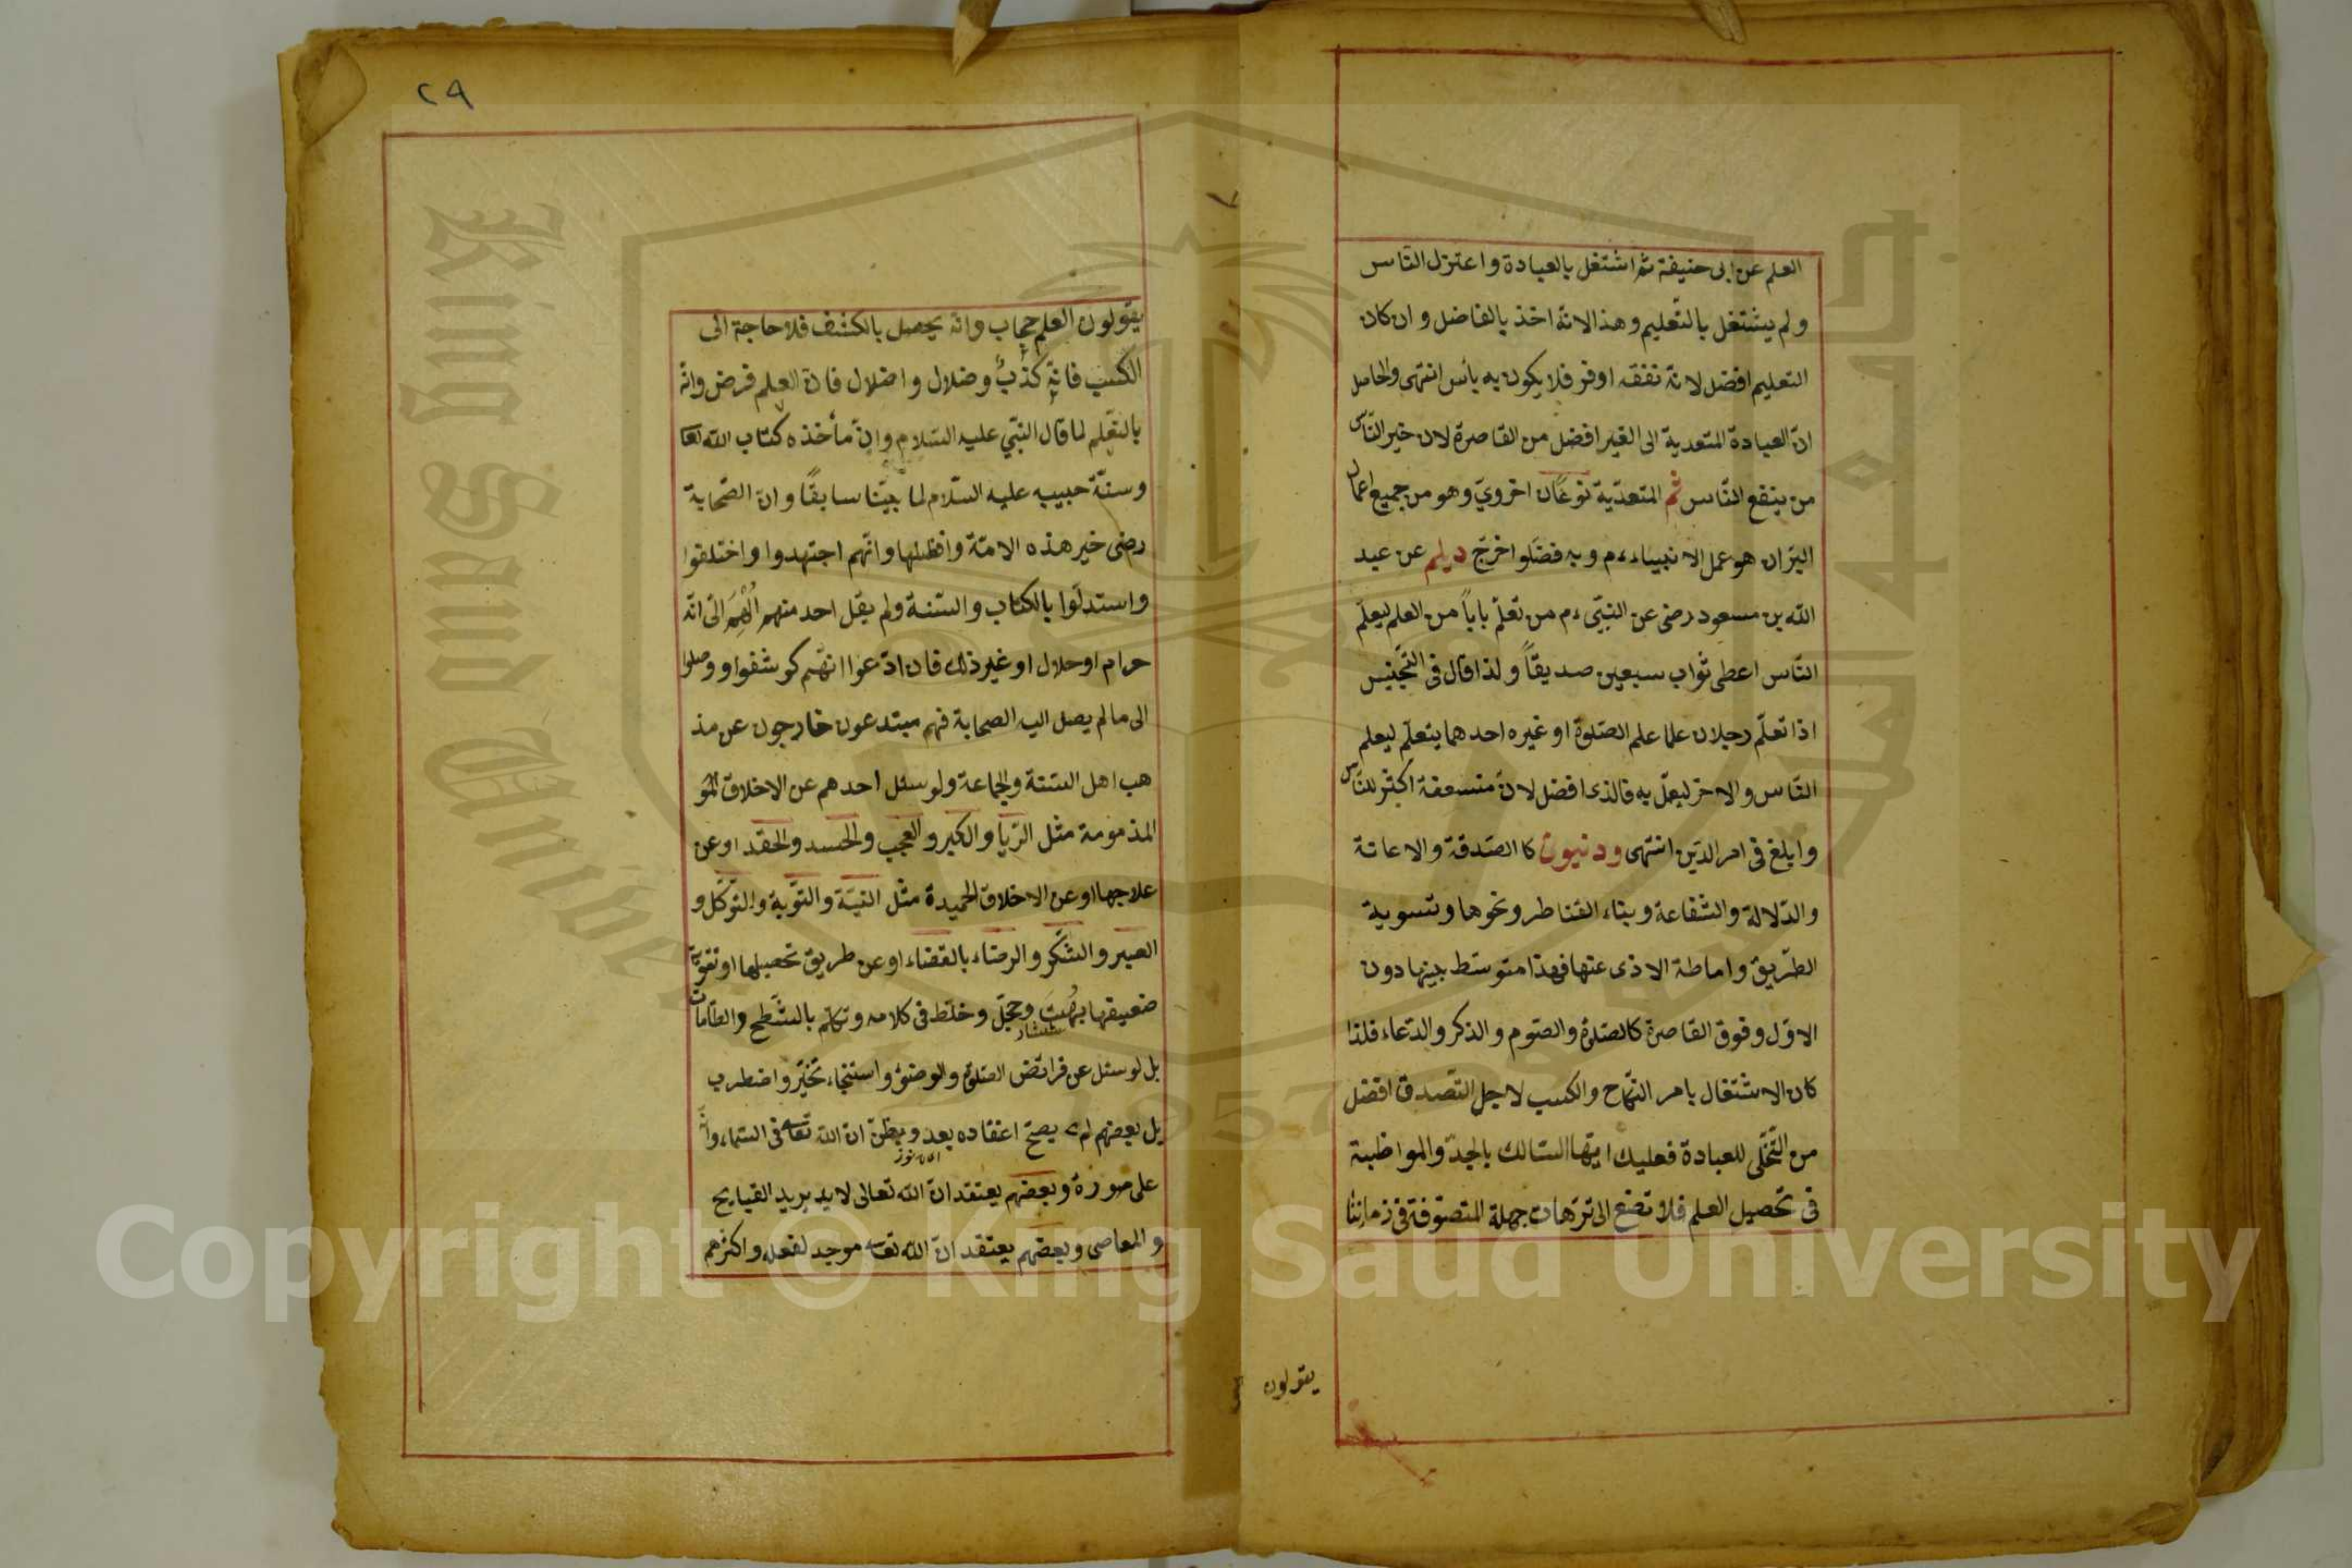 العلم عن ابى حنيفة ثم اشتغل بالعبادة واعتزل الناس
ولم يشتغل بالتعليم وهذا لانه اخذ بالفاضل وان كان
التعليم افضل لانه نفقه اوفر فلا يكون به بأس انتهى والحاصل
ان العبادة المتعدية الى الغير افضل من القاصرة لان خير الناس
من ينفع الناس ثم المتعدية نوعان اخروي وهو من جميع اعمال
البر ان هو عمل الانبياء ءم وبه فضلوا اخرج ديلم عن عبد
الله بن مسعود رضى عن النبي ءم من تعلم بابا من العلم ليعلم
الناس اعطى ثواب سبعين صديقا ولذا قال فى التجنيس
اذا تعلم رجلان علما علم الصلوة او غيره احدهما يتعلم ليعلم
الناس والاخر ليعمل به فالذى افضل لان منفعة اكثر للناس
وابلغ فى امر الدين انتهى ودنيون كالصدقة والاعانة
والدلالة والشفاعة وبناء القناطر ونحوها وتسوية
الطريق واماطة الاذى عنها فهذا متوسط بينها دون
الاول وفوق القاصرة كالصلوة والصوم والذكر والدعاء فلذا
كان الاشتغال بامر النكاح والكسب لاجل التصدق افضل
من التخلى للعبادة فعليك ايها السالك بالجد والمواظبة
فى تحصيل العلم فلا تضع الى ترهات جهلة المتصوفة فى زماننا
يقولون
٢٩
يقولون العلم حجاب وانه يحصل بالكشف فلا حاجة الى
الكسب فانه كذب وضلال واضلال فان العلم فرض وانه
بالتعلم لما قال النبي عليه السلام وان مأخذه كتاب الله تعا
وسنة حبيبه عليه السلام لما بينا سابقا وان الصحابة
رضى خير هذه الامة وافضلها وانهم اجتهدوا واختلفوا
واستدلوا بالكتاب والسنة ولم يقل احد منهم الهم الى انه
حرام او حلال او غير ذلك فان ادعوا انهم كوشفوا ووصلوا
الى ما لم يصل اليه الصحابة فهم مبتدعون خارجون عن مذ
هب اهل السنة والجماعة ولو سئل احدهم عن الاخلاق
المذمومة مثل الريا والكبر والعجب والحسد والحقد او عن
علاجها او عن الاخلاق الحميدة مثل النية والتوبة والتوكل و
الصبر والشكر والرضاء بالقضاء او عن طريق تحصيلها او تقوية
ضعيفها بهت وخجل وخلط فى كلامه وتكلم بالشطح والطامات
بل لو سئل عن فرائض الصلوة والوضوء واستنجاء تحير واضطرب
بل بعضهم لم يصح اعتقاده بعد ويظن ان الله تعالى فى السماء وانه
على صورة وبعضهم يعتقد ان الله تعالى لا يريد القبايح
والمعاصى وبعضهم يعتقد ان الله تعالى موجد لفعله واكثرهم
Copyright © King Saud University
King Saud University
1957